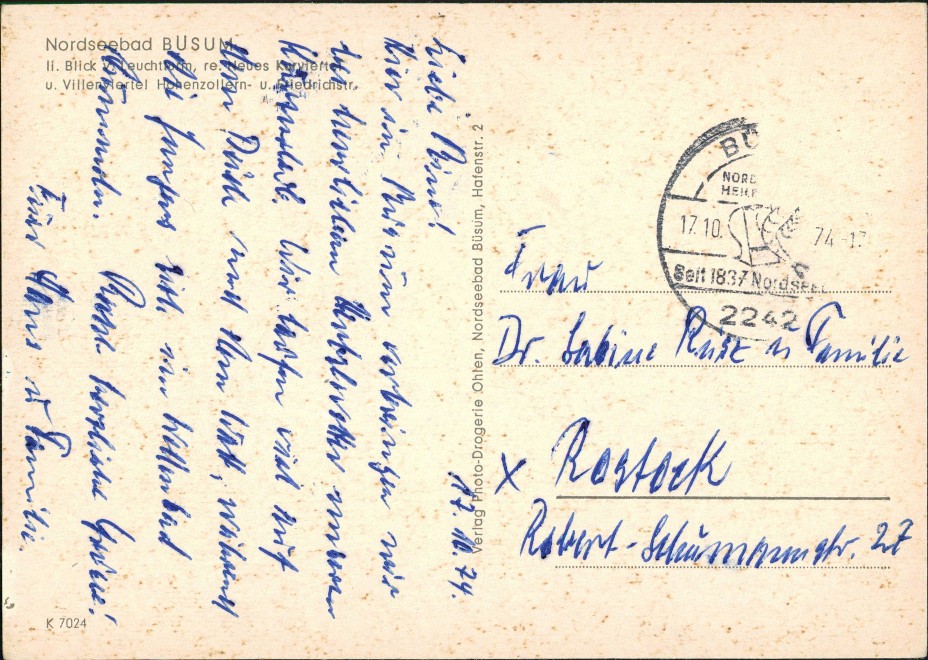 Nordseebad BÜSUM
li. Blick v. Leuchtturm, re. Neues Kurviertel
u. Villenviertel Hohenzollern- u. Friedrichstr.
17. 10. 74.
Hier in Büsum verbringen wir
bei herrlichem
Wir laufen viel auf
dem Deich und dem Watt, während
die Jungens sich im Wellenbad
tummeln. Recht herzliche Grüße!
Eure u Familie.
K 7024
Verlag Photo-Drogerie Ohlen, Nordseebad Büsum, Hafenstr. 2
BÜ
NORD
HEIL
17.10. 74-17
Seit 1837 Nordsee
2242
Frau
Dr. Sabine u Familie
X Rostock
Robert-Schumannstr. 27